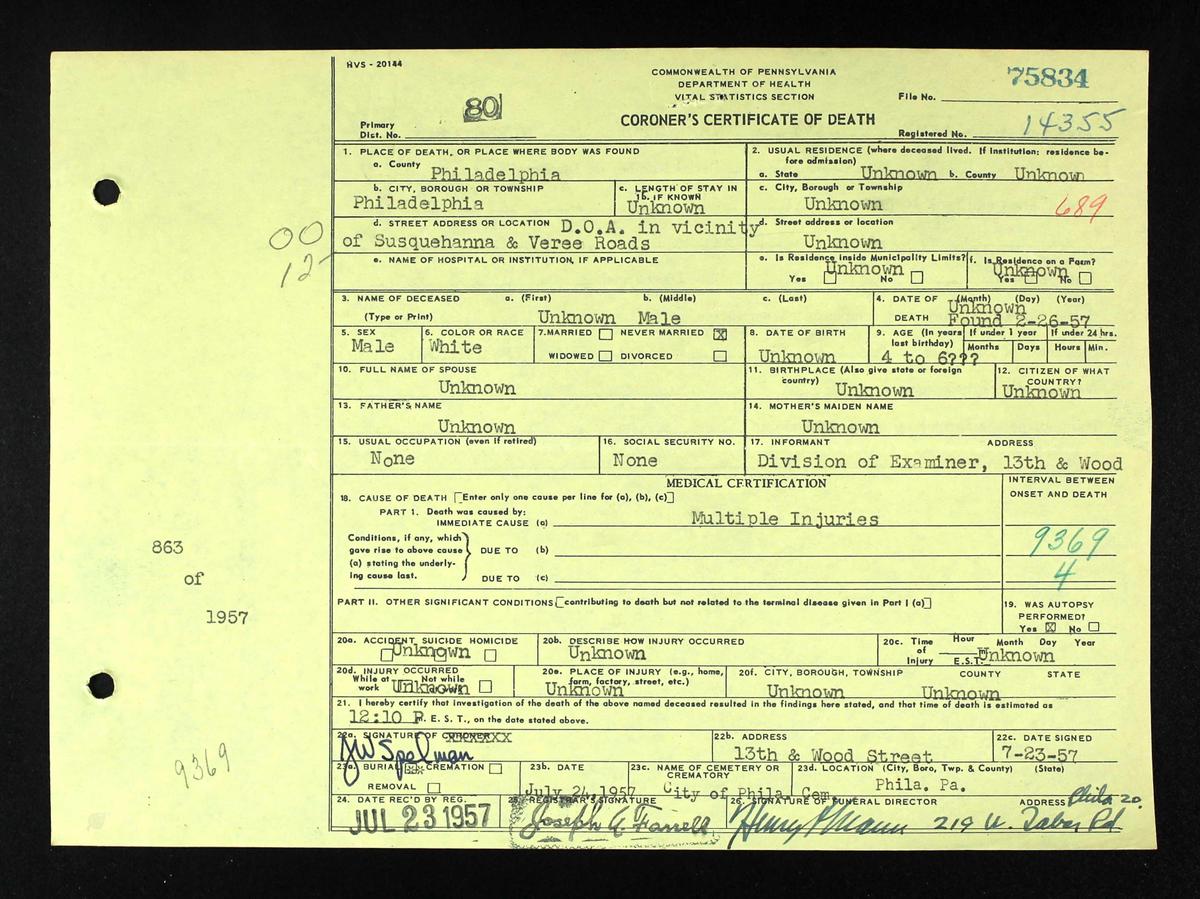 HVS - 20144
COMMONWEALTH OF PENNSYLVANIA
DEPARTMENT OF HEALTH
VITAL STATISTICS SECTION
File No. 75834
80
Primary
Dist. No.
CORONER'S CERTIFICATE OF DEATH
Registered No. 14355
1. PLACE OF DEATH, OR PLACE WHERE BODY WAS FOUND
a. County Philadelphia
2. USUAL RESIDENCE (where deceased lived. If institution: residence be-
fore admission)
a. State Unknown b. County Unknown
b. CITY, BOROUGH OR TOWNSHIP
Philadelphia
c. LENGTH OF STAY IN
1b. IF KNOWN
Unknown
c. City, Borough or Township
Unknown
689
d. STREET ADDRESS OR LOCATION D.O.A. in vicinity
of Susquehanna & Veree Roads
d. Street address or location
Unknown
00
12
e. NAME OF HOSPITAL OR INSTITUTION, IF APPLICABLE
e. Is Residence inside Municipality Limits?
Unknown
Yes No
f. Is Residence on a Farm?
Unknown
Yes No
3. NAME OF DECEASED a. (First) b. (Middle) c. (Last)
(Type or Print) Unknown Male
4. DATE OF DEATH (Month) (Day) (Year)
Unknown
Found 2-26-57
5. SEX
Male
6. COLOR OR RACE
White
7. MARRIED NEVER MARRIED X
WIDOWED DIVORCED
8. DATE OF BIRTH
Unknown
9. AGE (In years last birthday)
4 to 6???
If under 1 year
Months Days
If under 24 hrs.
Hours Min.
10. FULL NAME OF SPOUSE
Unknown
11. BIRTHPLACE (Also give state or foreign
country)
Unknown
12. CITIZEN OF WHAT
COUNTRY?
Unknown
13. FATHER'S NAME
Unknown
14. MOTHER'S MAIDEN NAME
Unknown
15. USUAL OCCUPATION (even if retired)
None
16. SOCIAL SECURITY NO.
None
17. INFORMANT ADDRESS
Division of Examiner, 13th & Wood
MEDICAL CERTIFICATION
INTERVAL BETWEEN
ONSET AND DEATH
18. CAUSE OF DEATH [Enter only one cause per line for (a), (b), (c)]
PART 1. Death was caused by:
IMMEDIATE CAUSE (a) Multiple Injuries
Conditions, if any, which
gave rise to above cause
(a) stating the underly-
ing cause last.
DUE TO (b)
DUE TO (c)
9369
4
863
of
1957
PART II. OTHER SIGNIFICANT CONDITIONS [contributing to death but not related to the terminal disease given in Part I (a)]
19. WAS AUTOPSY
PERFORMED?
Yes X No
20a. ACCIDENT SUICIDE HOMICIDE
Unknown
20b. DESCRIBE HOW INJURY OCCURRED
Unknown
20c. Time of Injury Hour E.S.T. Month Day Year
Unknown
20d. INJURY OCCURRED
While at work Not while
Unknown
20e. PLACE OF INJURY (e.g., home,
farm, factory, street, etc.)
Unknown
20f. CITY, BOROUGH, TOWNSHIP COUNTY STATE
Unknown Unknown
21. I hereby certify that investigation of the death of the above named deceased resulted in the findings here stated, and that time of death is estimated as
12:10 P. E. S. T., on the date stated above.
22a. SIGNATURE OF CORONER XXXXXXX
JW Spelman
22b. ADDRESS
13th & Wood Street
22c. DATE SIGNED
7-23-57
9369
23a. BURIAL CREMATION
REMOVAL
23b. DATE
July 24, 1957
23c. NAME OF CEMETERY OR
CREMATORY
City of Phila. Cem.
23d. LOCATION (City, Boro, Twp. & County) (State)
Phila. Pa.
24. DATE REC'D BY REG.
JUL 23 1957
25. REGISTRAR'S SIGNATURE
Joseph A Farrell
26. SIGNATURE OF FUNERAL DIRECTOR ADDRESS
Henry P Mann 219 W. Tabor Rd Phila 20.